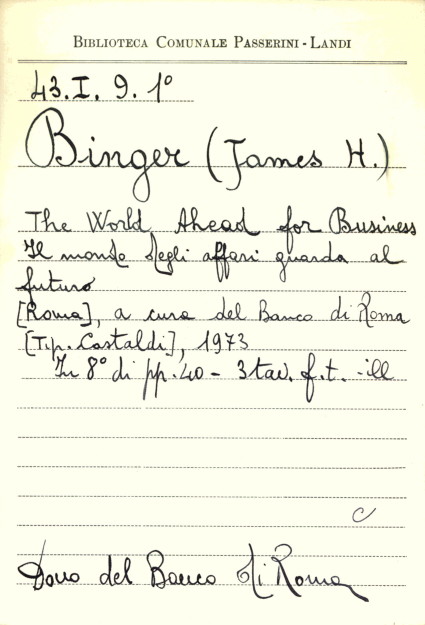 BIBLIOTECA COMUNALE PASSERINI-LANDI
43.I. 9. 1°
Binger (James H.)
The World Ahead for Business
Il mondo degli affari guarda al
futuro
[Roma], a cura del Banco di Roma
[Tip. Castaldi], 1973
In 8° di pp. 40 - 3 tav. f. t. - ill
C
Dono del Banco di Roma